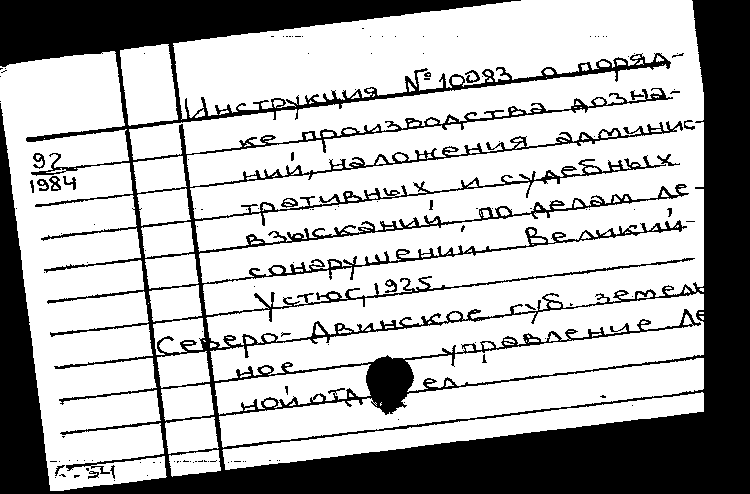 Инструкция № 10083 о поряд-
ке производства дозна-
92
1984
ний, наложения админис-
тративных и судебных
взысканий по делам ле-
сонарушений. Великий
Устюг, 1925.
Северо-Двинское губ. земель
ное управление Ле
ной отдел.